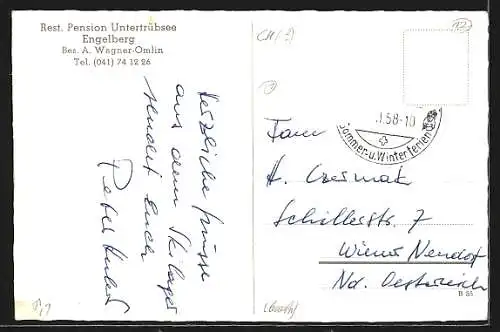 Rest. Pension Untertrübsee
Engelberg
Bes. A. Wagner-Omlin
Tel. (041) 74 12 26
Herzliche Grüsse
aus dem Skilager
sendet Euch
Peter
CH/
12
.58-10
Sommer-u.Winterferien
Fam
H. Czermak
Schillerstr. 7
Wiener Neudorf
Nd. Oesterreich
B 35